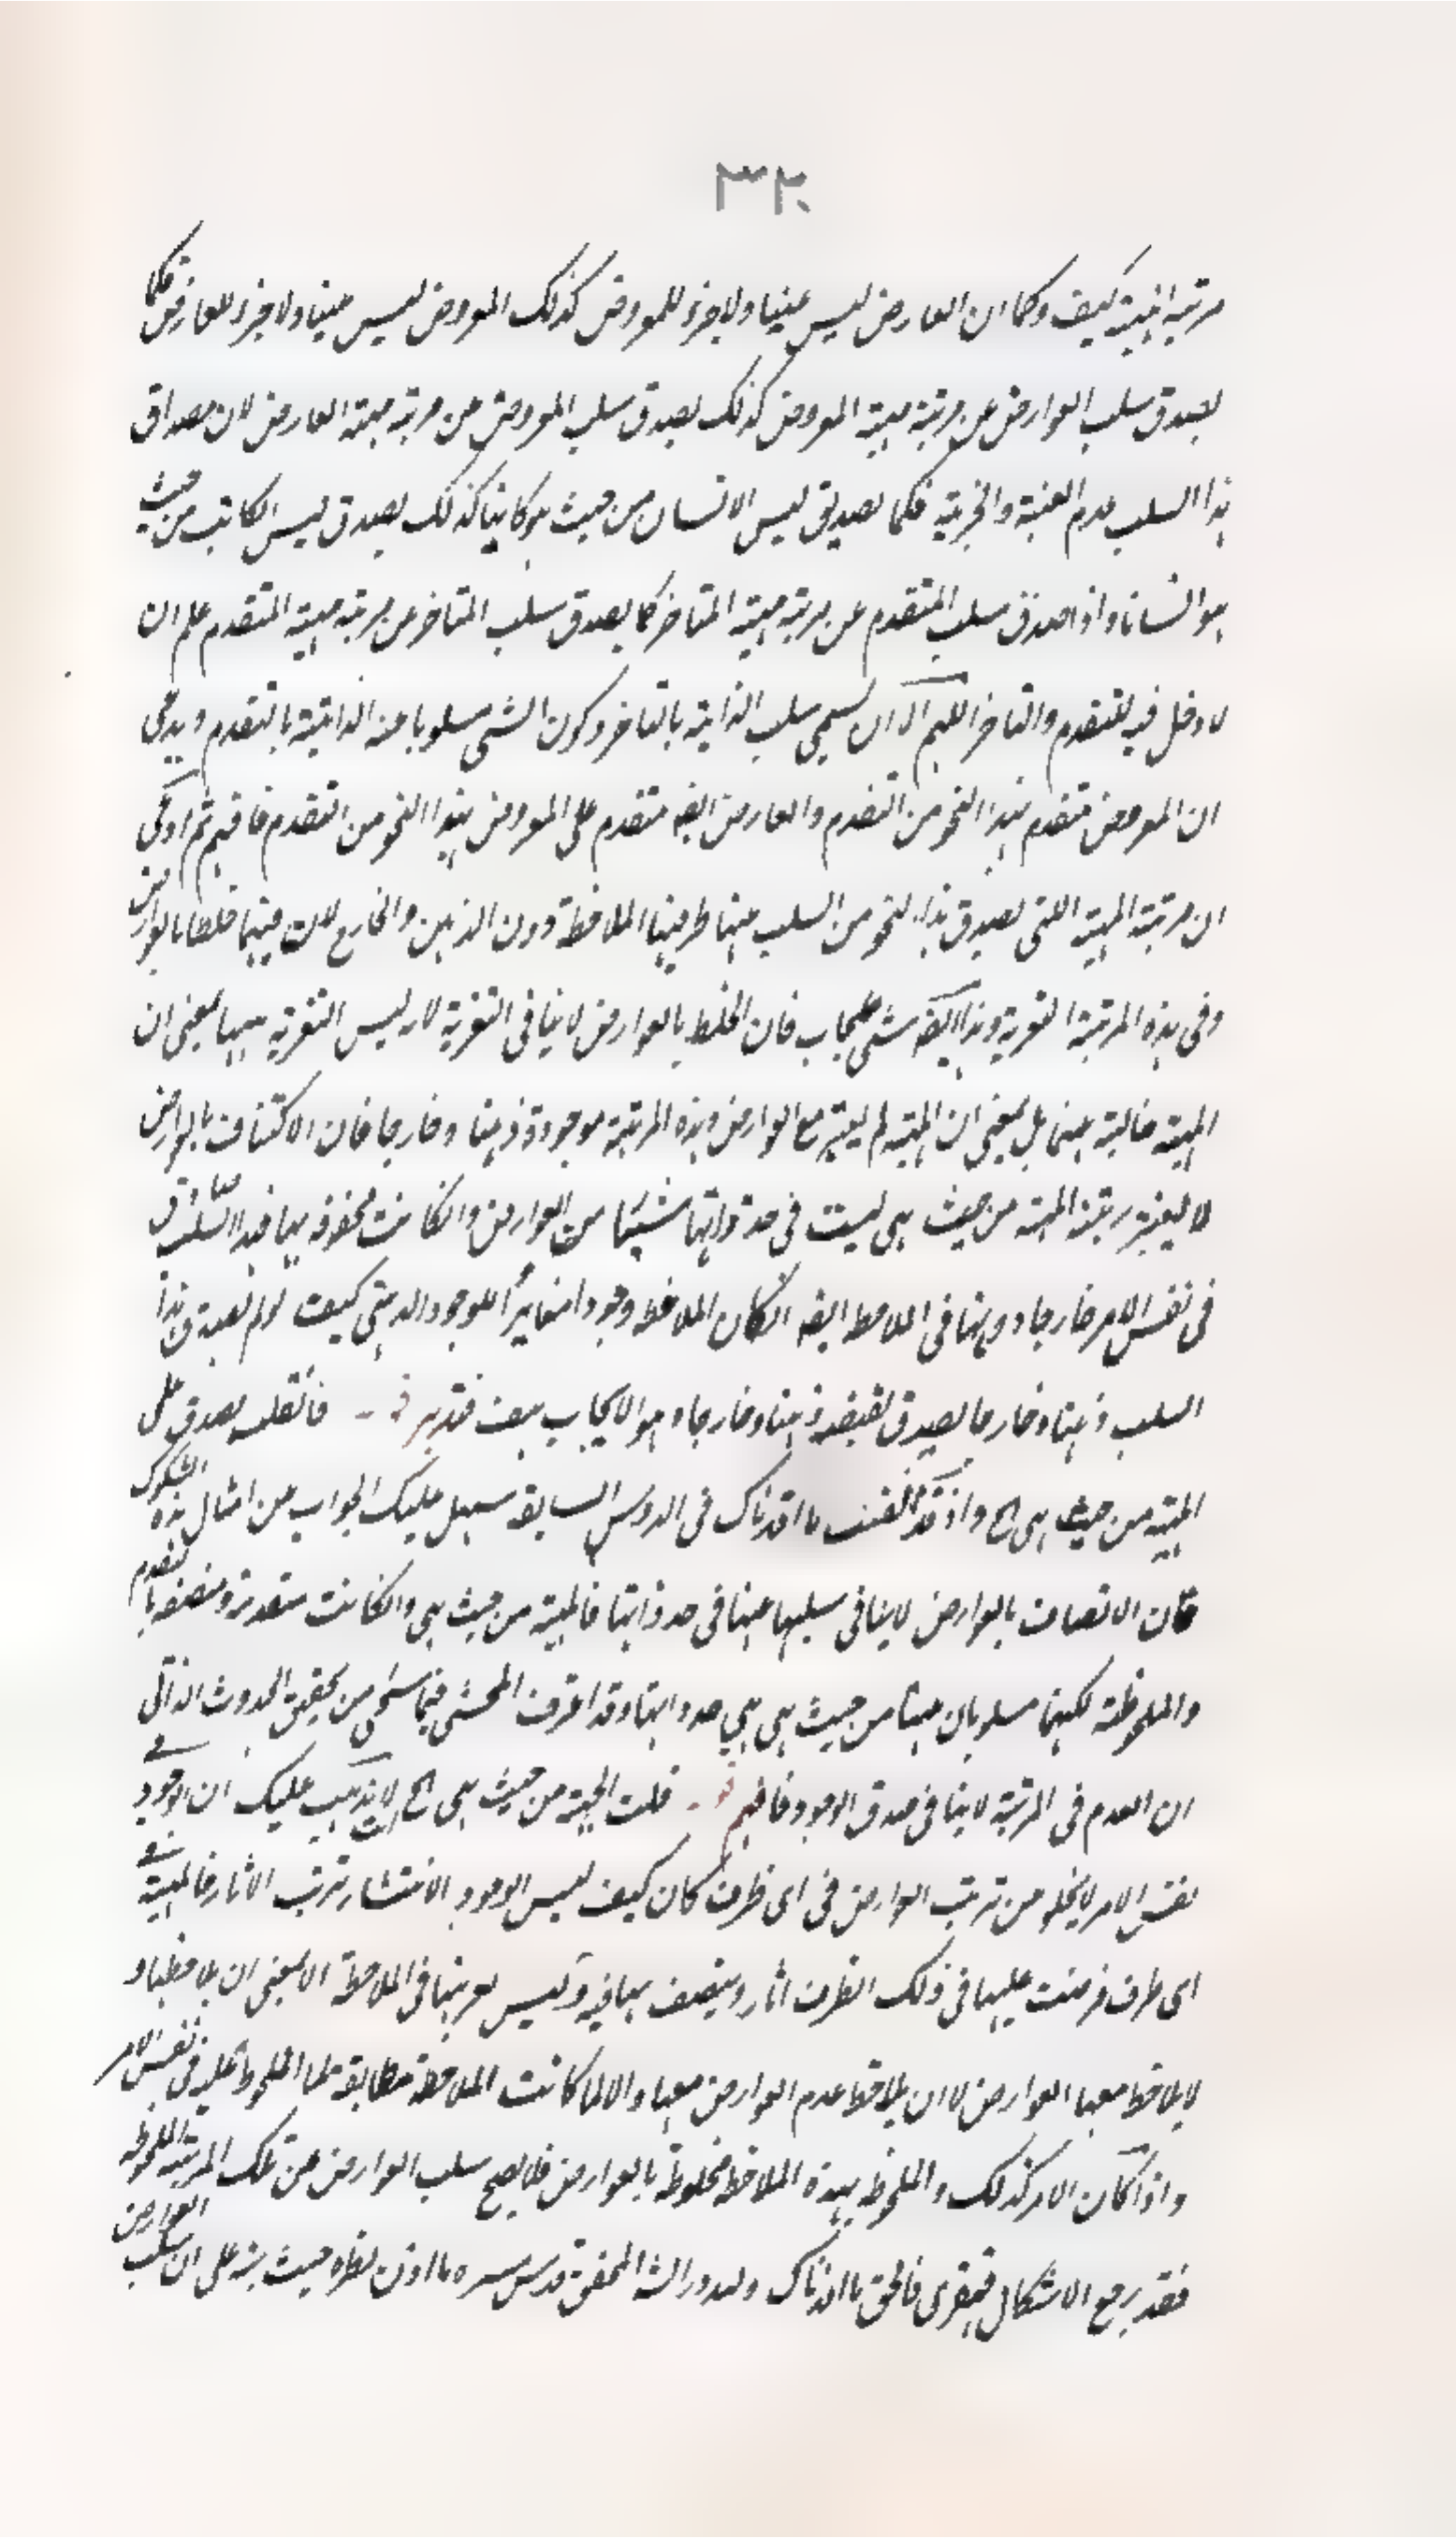 ٣٢٠
مرتبة كيف وكما ان العارض ليس عينا ولا جزء للمعروض كذلك المعروض ليس عينا ولا جزء للعارض فكما
يصدق سلب العوارض عن مرتبة مهية المعروض كذلك يصدق سلب المعروض عن مرتبة مهية العارض لان مصداق
هذا السلب عدم العينية والجزئية فكما يصدق ليس الانسان من حيث هو كاتبا كذلك يصدق ليس الكاتب من حيث
هو انسانا واذا صدق سلب المتقدم عن مرتبة مهية المتاخر كما يصدق سلب المتاخر عن مرتبة مهية المتقدم علم ان
لا دخل فيه للتقدم والتاخر اللهم الا ان يسمى سلب الذاتية بالتاخر وكون الشى مسلوبا عنه الذاتية بالتقدم ويدعى
ان المعروض متقدم بهذا النحو من التقدم والعارض ايضا متقدم على المعروض بهذا النحو من التقدم فافهم ثم ادعى
ان مرتبة المهية التى يصدق هذا النحو من السلب عنها ظرفها الملاحظة دون الذهن والخارج لان فيهما خلطا بالعوارض
وفى هذه المرتبة التعرية وهذا ايضا شى عجاب فان الخلط بالعوارض لا ينافى التعرية لانه ليس التعرية بمعنى ان
المهية خالية عنها بل بمعنى ان المهية لم يعتبر مع العوارض وهذه المرتبة موجودة ذهنا وخارجا فان الاكتناف بالعوارض
لا يغير مرتبة المهية من حيث هى ليست فى حد ذاتها شيئا من العوارض وانكانت محفوفة بها فهذا السلب صادق
فى نفس الامر خارجا وذهنا فى الملاحظة ايضا انكان الملاحظة وجودا مغايرا للوجود الذهنى كيف لو لم يصدق هذا
السلب ذهنا وخارجا لصدق نقيضه ذهنا وخارجا وهو الايجاب فتدبر قـ - فانقلت يصدق على
المهية من حيث هى الخ واذ قد ما افدناك فى الدروس السابق سهل عليك الجواب عن امثال هذه الشكوك
فان الاتصاف بالعوارض لا ينافى سلبها عنها فى حد ذاتها فالمهية من حيث هى وانكانت متقدمة ومتصفة بالتقدم
والملحوظة لكنهما مسلوبان عنها من حيث هى هى وقد اعترف المحشى فيما سيجئ من تحقيق الحدوث الذاتى
ان العدم فى المرتبة لا ينافى صدق الوجود فافهم قـ - قلت المهية من حيث هى الخ لا يذهب عليك ان الوجود فى
نفس الامر لا يخلو من ترتب العوارض فى اى ظرف كان كيف ليس الوجود الا منشا ترتب الاثار فالمهية فى
اى ظرف فرضت عليها فى ذلك الظرف اثار ويتصف بها فيه وليس تعريتها فى الملاحظة الا بمعنى ان يلاحظها و
لا يلاحظ معها العوارض لا ان يلاحظ عدم العوارض معها والا لما كانت الملاحظة مطابقة لما الملحوظ عليه فى نفس الامر
واذا كان الامر كذلك والملحوظة بهذه الملاحظة مخلوطة بالعوارض فلا يصح سلب العوارض عن تلك المرتبة الملحوظة
فقد رجع الاشكال فالحق ما افدناك ولله در المحقق قدس سره ما ادق نظره حيث نبه على ان سلب العوارض